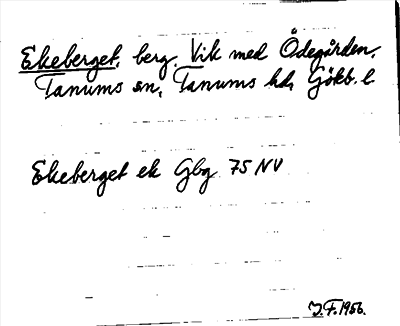 Ekeberget, berg, Vik med Ödegården,
Tanums sn, Tanums hd, Gökb. l.
Ekeberget ek Gbg 75 NV
J.F. 1956.